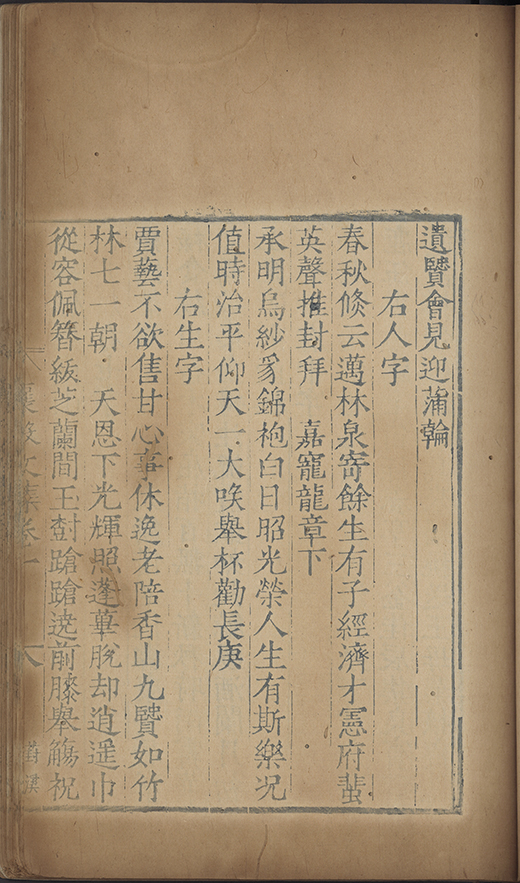 遺賢會見迎蒲輪
右人字
春秋倏云邁林泉寄餘生有子經濟才憲府蜚
英聲推封拜　嘉寵龍章下
承明烏紗豸錦袍白日昭光榮人生有斯樂况
值時治平仰天一大唉舉杯勸長庚
右生字
賈藝不欲售甘心事休逸老陪香山九賢如竹
林七一朝　天恩下光輝照蓬蓽脫却逍遥巾
從容佩簪紱芝蘭間玉樹蹌蹌遶前膝舉觴祝
文集卷一　八